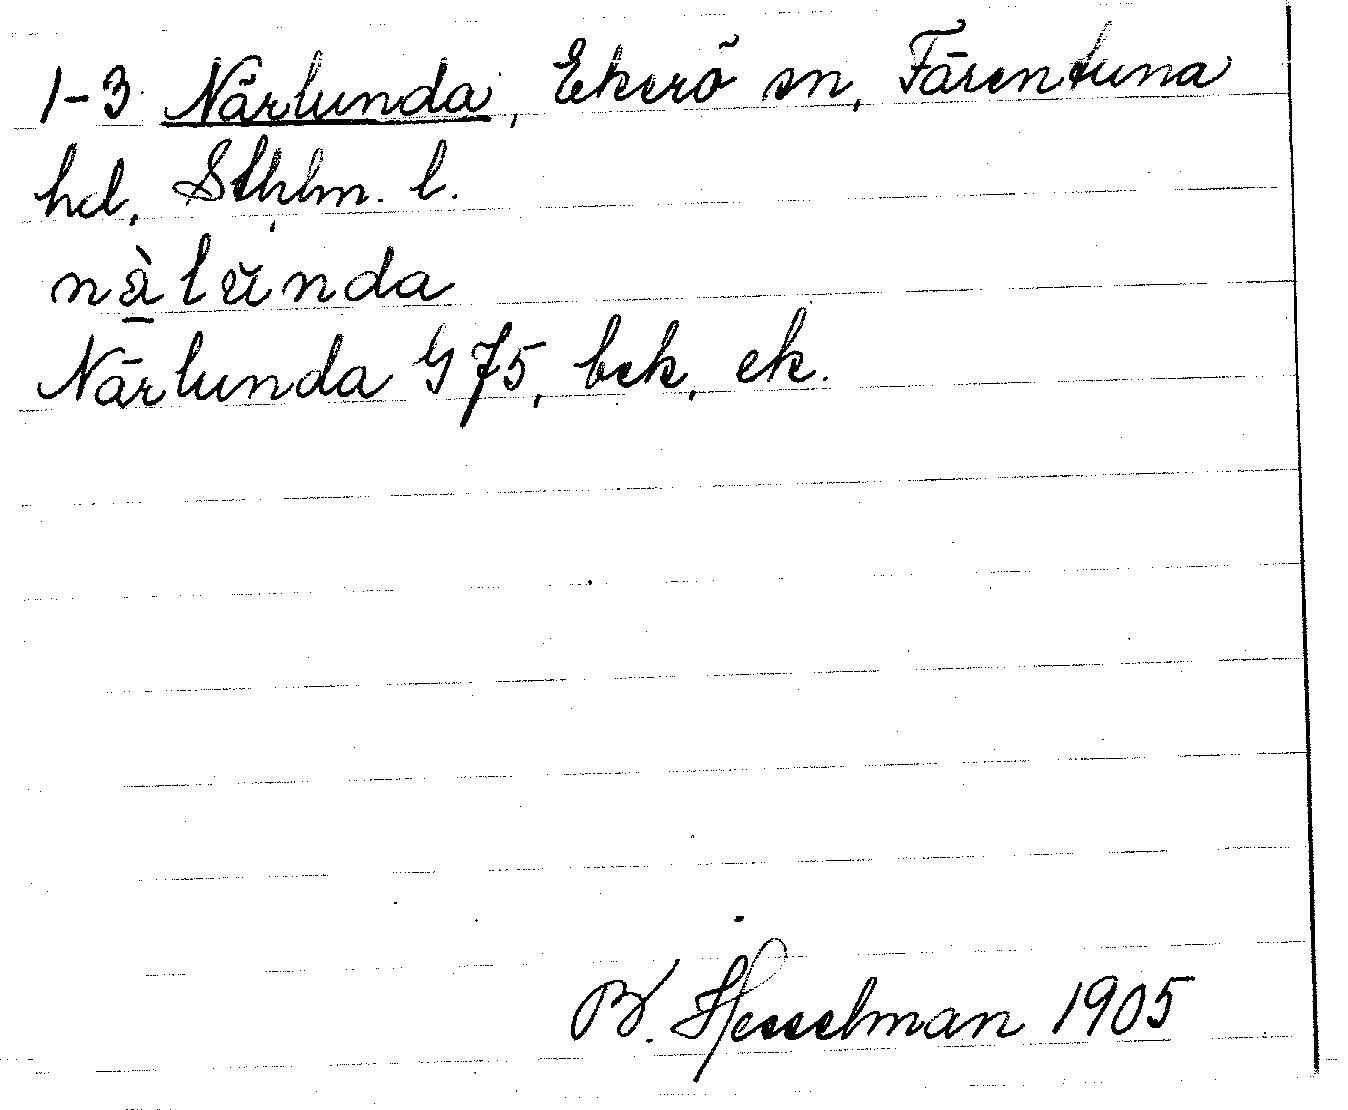 1-3 Närlunda, Ekerö sn, Färentuna
hd, Sthlm. l.
nà̱lŭnda
Närlunda G 75, bek. ek.
B. Hesselman 1905